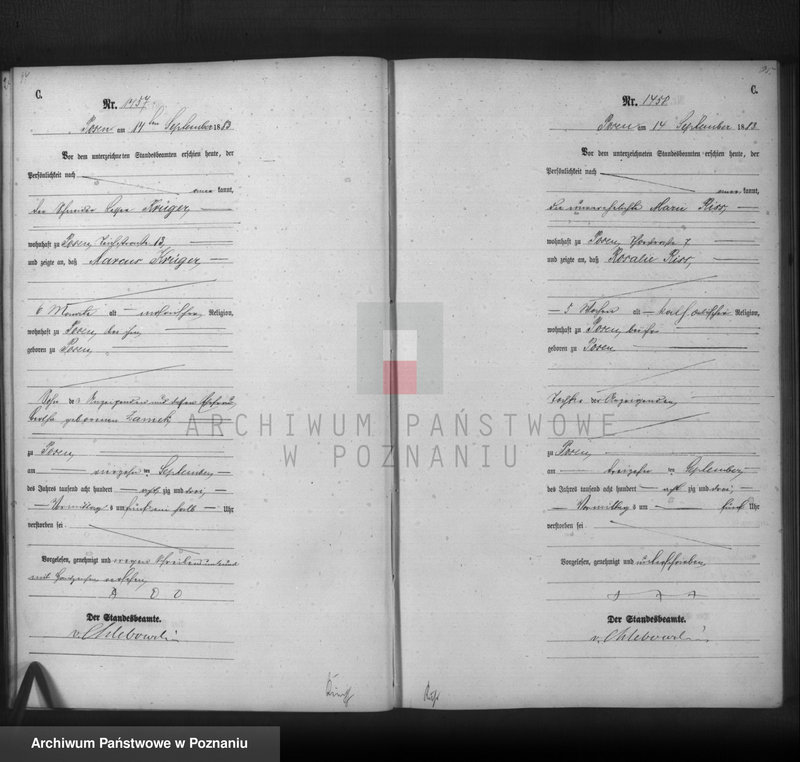 C.
Nr. 1457
Posen am 14ten September 1883
Vor dem unterzeichneten Standesbeamten erschien heute, der
Persönlichkeit nach
kannt,
der Schneider Krüger,
wohnhaft zu Posen, 13,
und zeigte an, daß Marcus Krüger,
6 Monate alt Religion,
wohnhaft zu Posen,
geboren zu Posen
Sohn des Anzeigenden und dessen Ehefrau
geborenen
zu Posen
am vierzehnten September
des Jahres tausend acht hundert achtzig und drei,
Vormittags um fünf ein halb Uhr
verstorben sei
Vorgelesen, genehmigt und wegen
mit Handzeichen versehen,
Der Standesbeamte.
v. Chlebowski
C.
Nr. 1458
Posen am 14 September 1883
Vor dem unterzeichneten Standesbeamten erschien heute, der
Persönlichkeit nach
kannt,
die unverehelichte Marie
wohnhaft zu Posen, 7
und zeigte an, daß Rosalie
5 Wochen alt katholischer Religion,
wohnhaft zu Posen bei ihr
geboren zu Posen
Tochter der Anzeigenden,
zu Posen,
am dreizehnten September
des Jahres tausend acht hundert achtzig und drei,
Vormittags um fünf Uhr
verstorben sei
Vorgelesen, genehmigt und unterschrieben
Der Standesbeamte.
v. Chlebowski
ARCHIWUM PAŃSTWOWE
W POZNANIU
Archiwum Państwowe w Poznaniu